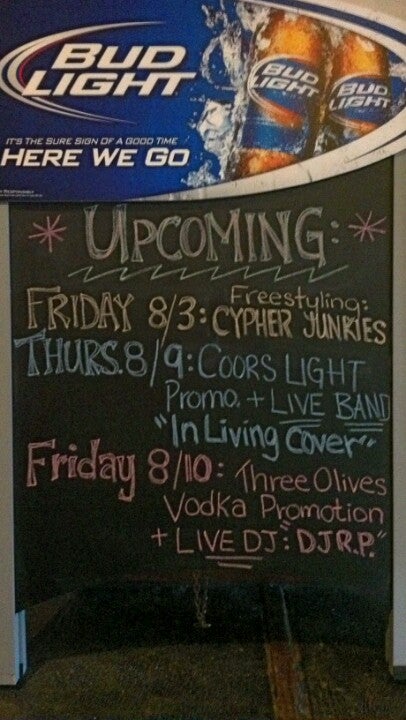 BUD LIGHT
BUD LIGHT
BUD LIGHT
IT'S THE SURE SIGN OF A GOOD TIME
HERE WE GO
UPCOMING:
FRIDAY 8/3: Freestyling: CYPHER JUNKIES
THURS. 8/9: COORS LIGHT
Promo. + LIVE BAND
"In Living Cover"
Friday 8/10: Three Olives
Vodka Promotion
+ LIVE DJ: "DJ R.P."